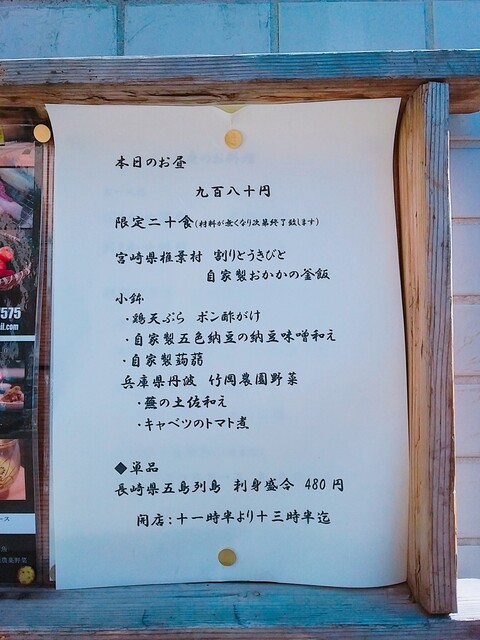 本日のお昼
九百八十円
限定二十食(材料が無くなり次第終了致します)
宮崎県椎葉村 割りとうきびと
自家製おかかの釜飯
小鉢
・鶏天ぷら ポン酢がけ
・自家製五色納豆の納豆味噌和え
・自家製蒟蒻
兵庫県丹波 竹岡農園野菜
・蕪の土佐和え
・キャベツのトマト煮
◆単品
長崎県五島列島 刺身盛合 480円
開店:十一時半より十三時半迄
7575
il.com
ース